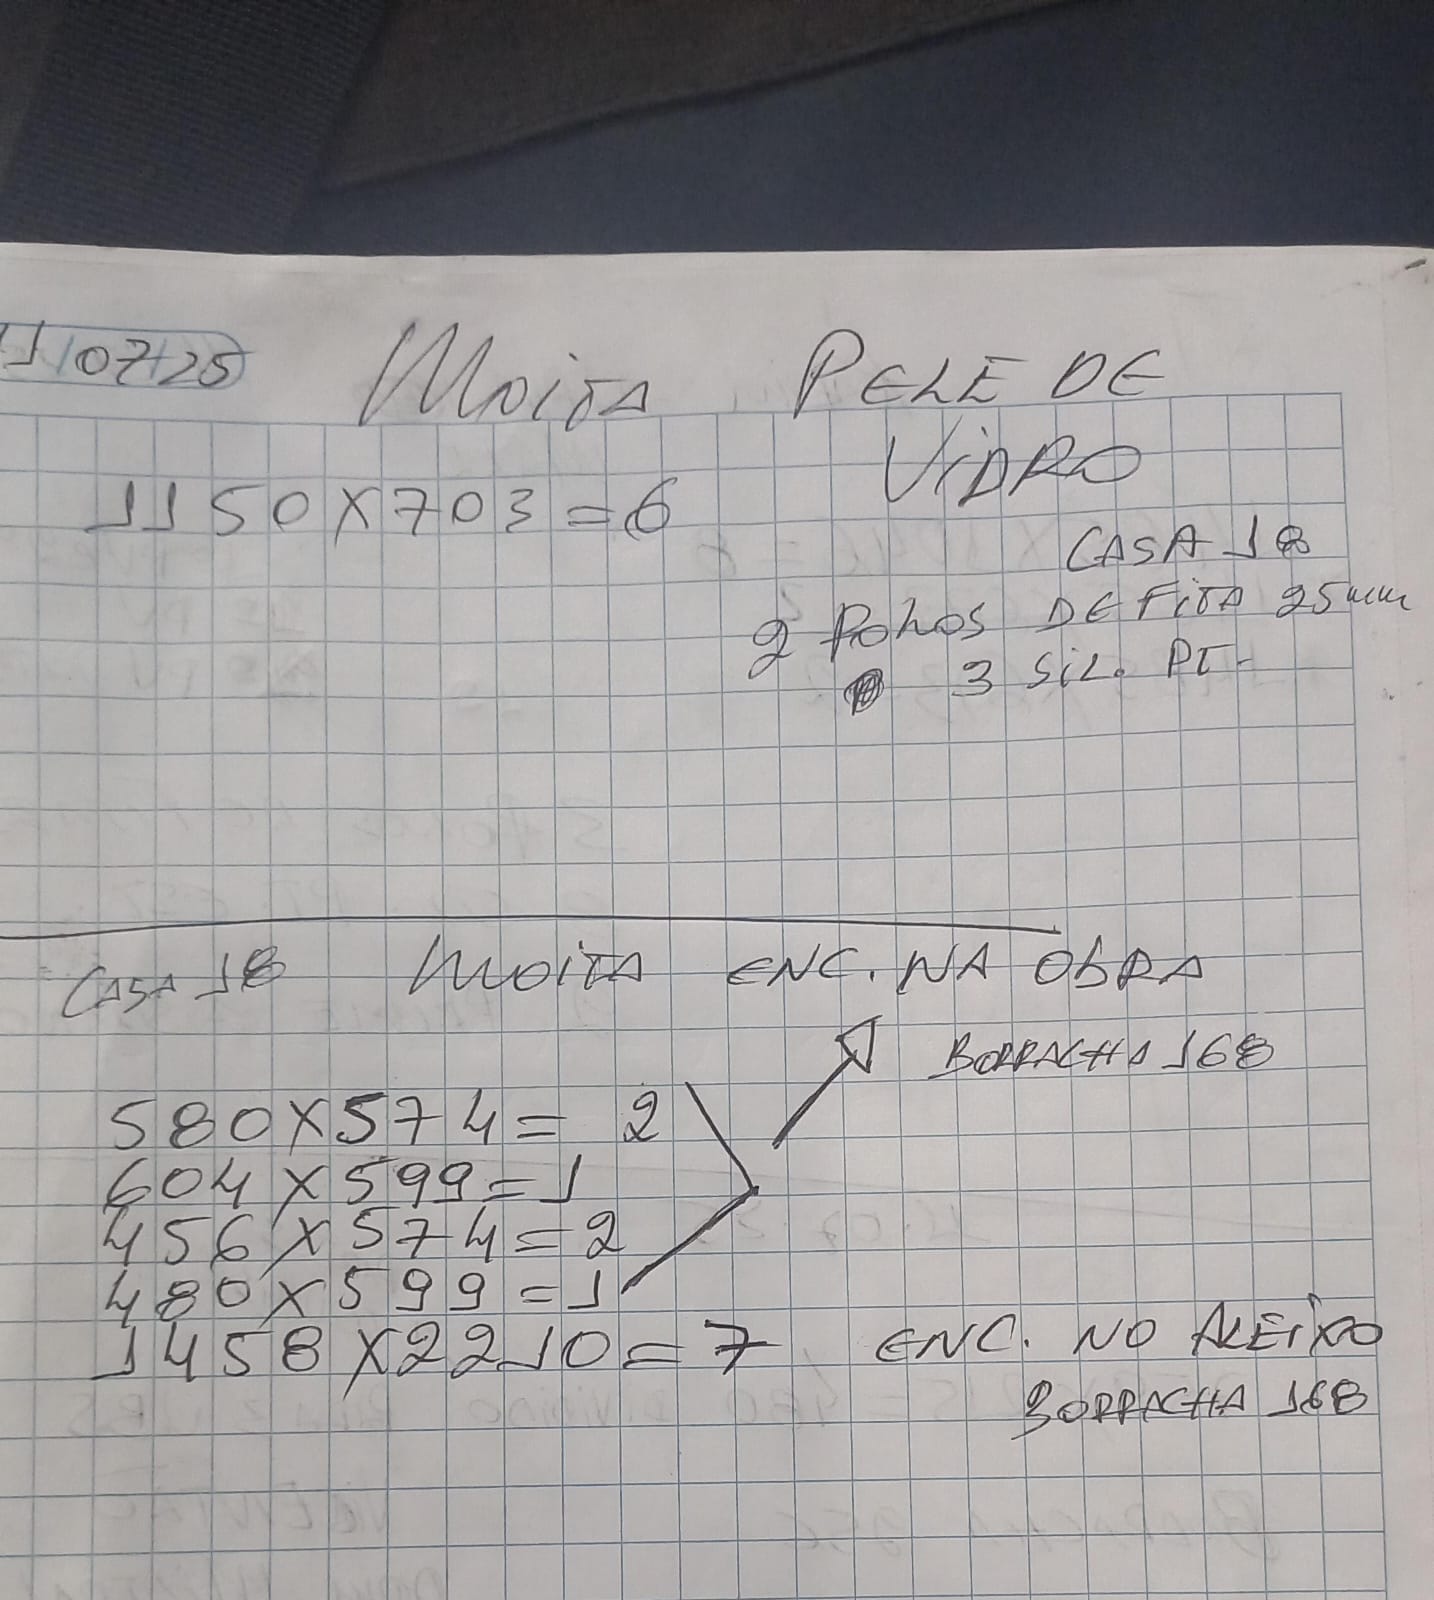 1/07/25 Moita PELE DE
VIDRO
1150X703=6
CASA 18
2 ROLOS DE FITA 25mm
3 SIL. PT.
CASA 18 MOITA ENC. NA OBRA
BORRACHA 168
580X574= 2
604X599=1
456X574=2
480X599=1
1458X2210=7 ENC. NO ALEIXO
BORRACHA 168